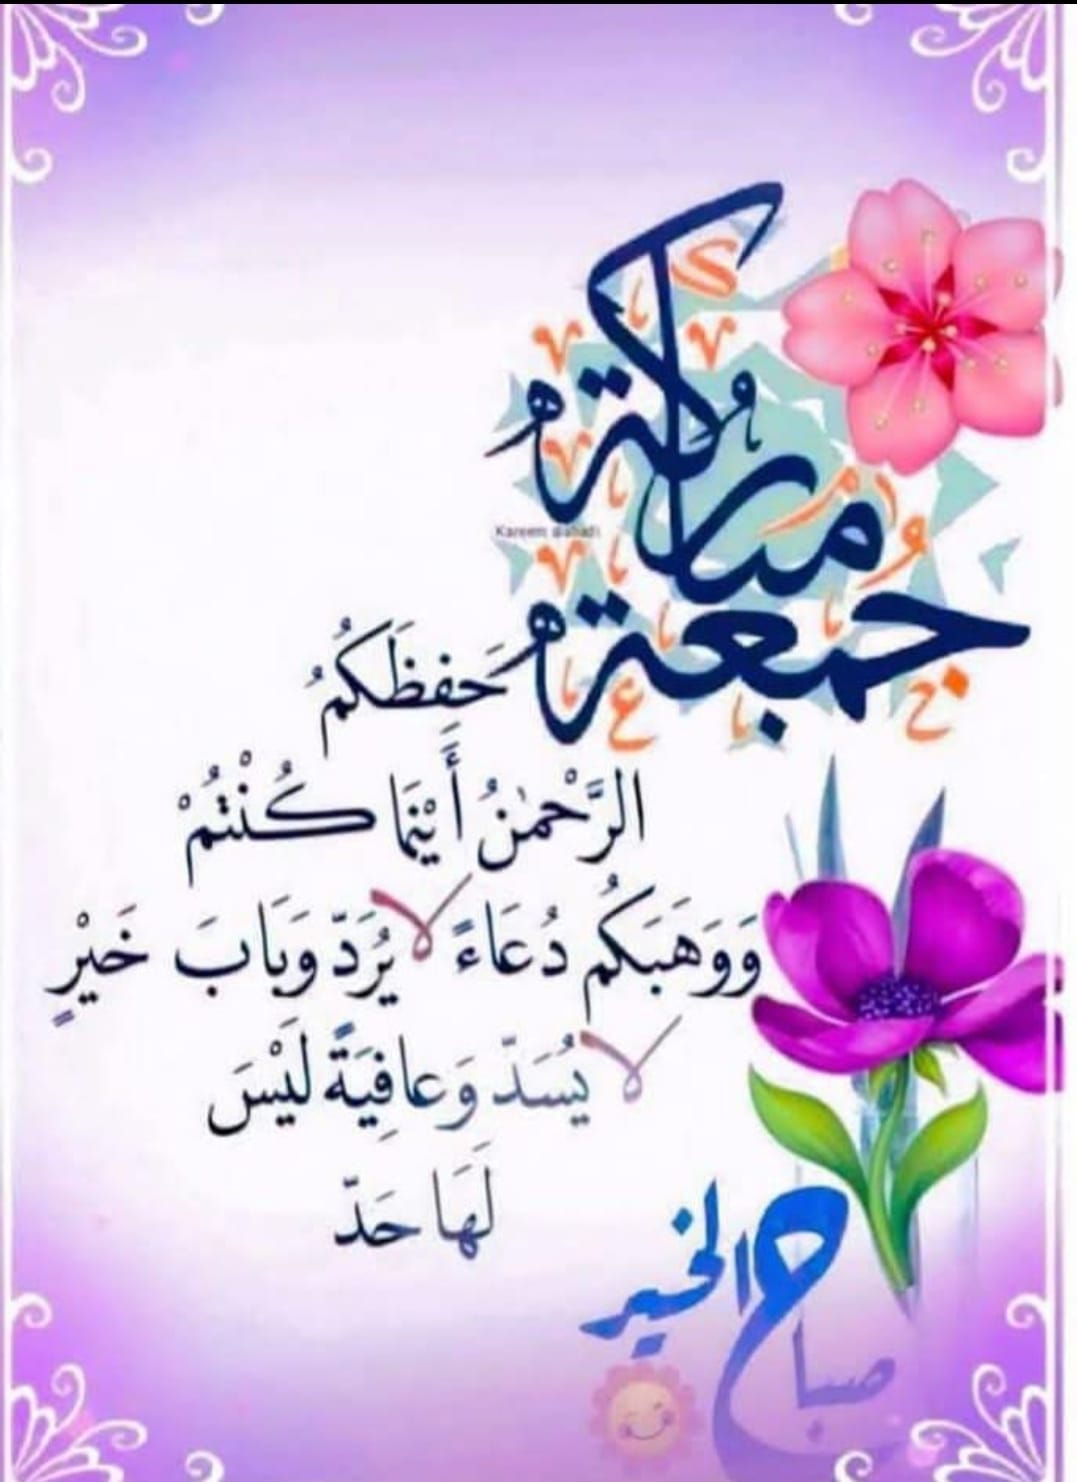 جمعة
مباركة
حَفِظَكُمُ
الرَّحْمٰنُ أَيْنَمَا كُنْتُمْ
وَوَهَبَكُم دُعَاءً لا يُرَدّ وَبَابَ خَيْرٍ
لا يُسَدّ وَعافِيَةً لَيْسَ
لَهَا حَدّ
صباح الخير